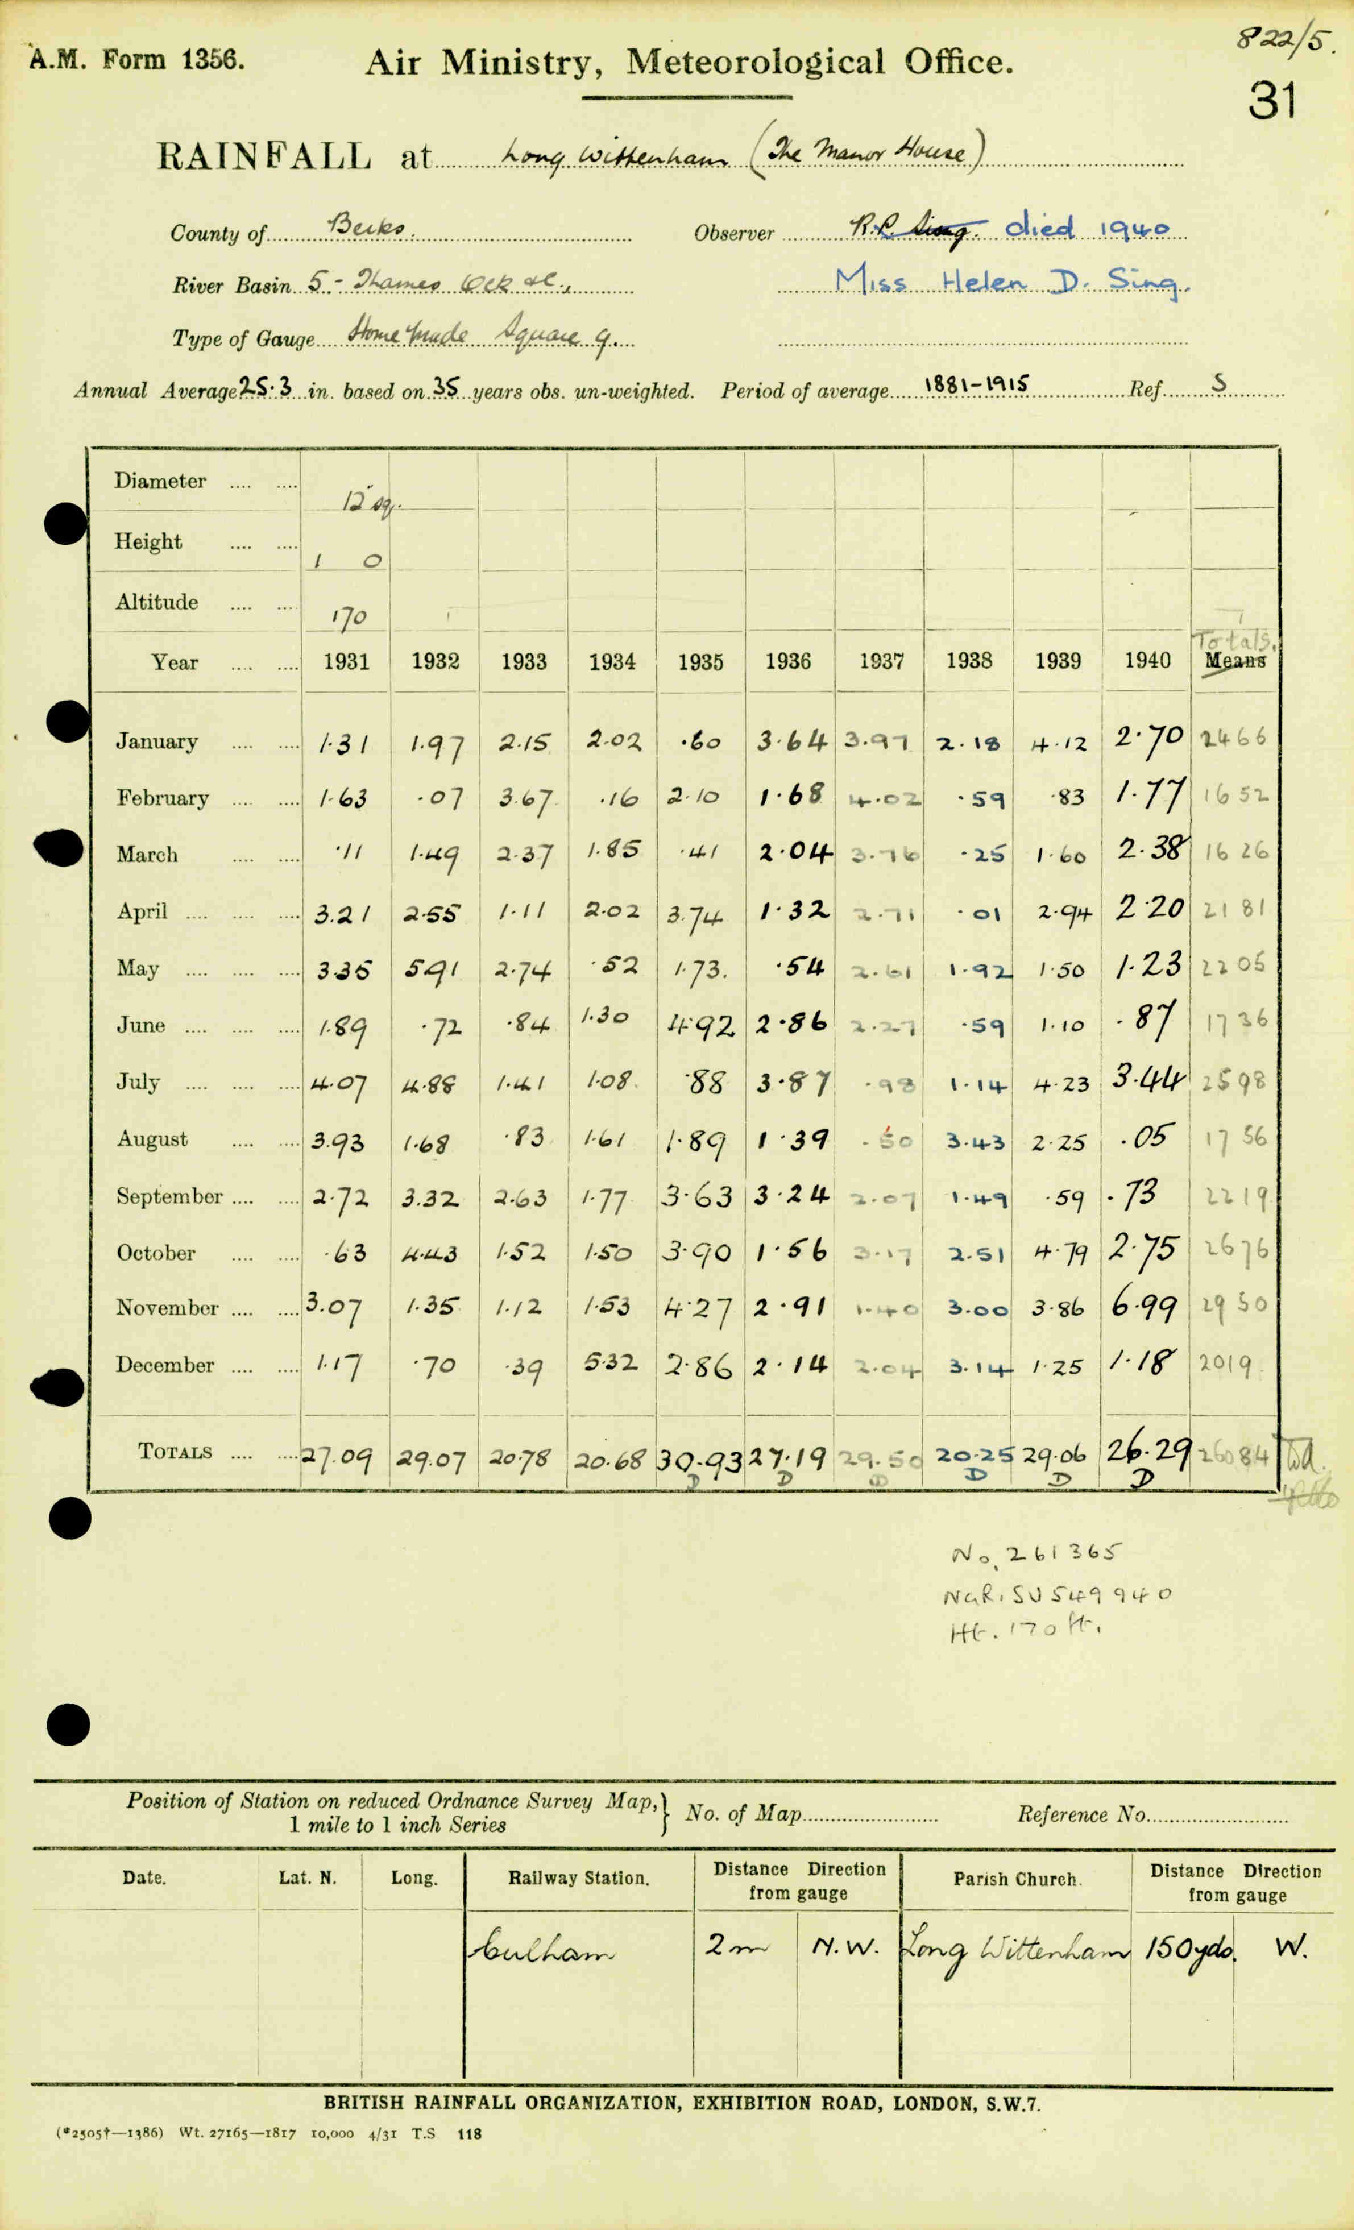 822/5.
A.M. Form 1356. Air Ministry, Meteorological Office.
31
RAINFALL at Long Wittenham (The Manor House)
County of Berks. Observer R.P. Sing. died 1940
River Basin 5 - Thames Ock &c., Miss Helen D. Sing.
Type of Gauge Home Made Square g.
Annual Average 25.3 in. based on 35 years obs. un-weighted. Period of average 1881-1915 Ref. S
Diameter .... .... 12" sq.
Height .... .... 1 0
Altitude .... .... 170
Totals.
Year .... .... 1931 1932 1933 1934 1935 1936 1937 1938 1939 1940 Means
January .... .... 1.31 1.97 2.15 2.02 .60 3.64 3.97 2.18 4.12 2.70 2466
February .... .... 1.63 .07 3.67 .16 2.10 1.68 4.02 .59 .83 1.77 1652
March .... .... .11 1.49 2.37 1.85 .41 2.04 3.76 .25 1.60 2.38 1626
April .... .... .... 3.21 2.55 1.11 2.02 3.74 1.32 2.71 .01 2.94 2.20 2181
May .... .... .... 3.35 5.91 2.74 .52 1.73. .54 2.61 1.92 1.50 1.23 2205
June .... .... .... 1.89 .72 .84 1.30 4.92 2.86 2.27 .59 1.10 .87 1736
July .... .... .... 4.07 4.88 1.41 1.08 .88 3.87 .98 1.14 4.23 3.44 2598
August .... .... 3.93 1.68 .83 1.61 1.89 1.39 .50 3.43 2.25 .05 1756
September .... .... 2.72 3.32 2.63 1.77 3.63 3.24 2.07 1.49 .59 .73 2219
October .... .... .63 4.43 1.52 1.50 3.90 1.56 3.17 2.51 4.79 2.75 2676
November .... .... 3.07 1.35 1.12 1.53 4.27 2.91 1.40 3.00 3.86 6.99 2950
December .... .... 1.17 .70 .39 5.32 2.86 2.14 2.04 3.14 1.25 1.18 2019
TOTALS .... .... 27.09 29.07 20.78 20.68 30.93 27.19 29.50 20.25 29.06 26.29 26084
D D D D D D
No. 261365
NGR. SU 549 940
Ht. 170 ft.
Position of Station on reduced Ordnance Survey Map,} No. of Map Reference No.
1 mile to 1 inch Series
Date. Lat. N. Long. Railway Station. Distance Direction Parish Church. Distance Direction
from gauge from gauge
Culham 2 m N.W. Long Wittenham 150 yds. W.
BRITISH RAINFALL ORGANIZATION, EXHIBITION ROAD, LONDON, S.W.7.
(*2505†—1386) Wt. 27165—1817 10,000 4/31 T.S 118